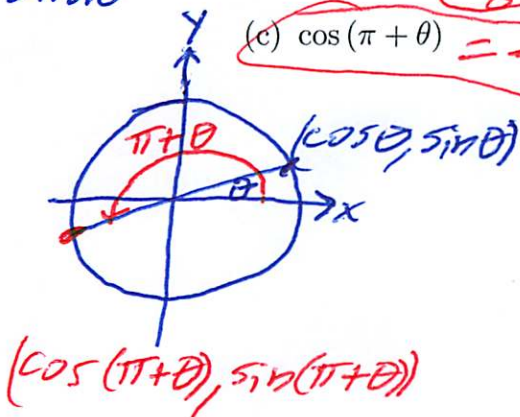 Y
(c) cos (π + θ) =
π+θ
(cosθ, sinθ)
θ
x
(cos(π+θ), sin(π+θ))